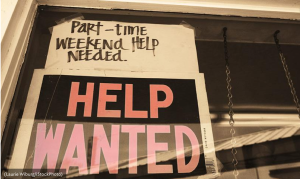 PART-TIME
WEEKEND HELP
NEEDED.
HELP
WANTED
(Laurie Wilburg/iStockPhoto)